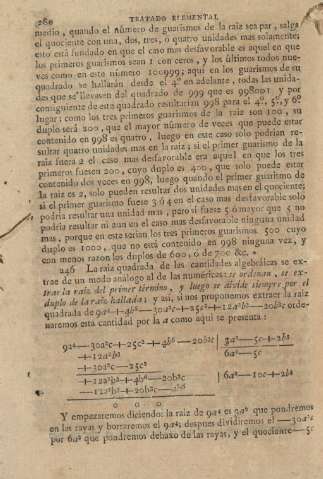 280 TRATADO ELEMENTAL
medio, quando el número de guarismos de la raiz sea par, salga
el quociente con una, dos, tres, ó quatro unidades mas solamente;
esto está fundado en que el caso mas desfavorable es aquel en que
los primeros guarismos sean 1 con ceros, y los últimos todos nue-
ves como en este número 100999; aqui en los guarismos de su
quadrado se hallarán desde el 4º en adelante, todas las unida-
des que se lleven del quadrado de 999 que es 998001 y por
consiguiente de este quadrado resultarian 998 para el 4º, 5º, y 6º
lugar; como los tres primeros guarismos de la raiz son 100, su
duplo será 200, que el mayor número de veces que puede estar
contenido en 998 es quatro, luego en este caso solo podrian re-
sultar quatro unidades mas en la raiz; si el primer guarismo de la
raiz fuera 2 el caso mas desfavorable era aquel en que los tres
primeros fuesen 200, cuyo duplo es 400, que solo puede estar
contenido dos veces en 998, luego quando el primer guarismo de
la raiz es 2, solo pueden resultar dos unidades mas en el quociente;
si el primer guarismo fuese 3 ó 4 en el caso mas desfavorable solo
podria resultar una unidad mas, pero si fuese 5 ó mayor que 5 no
podria resultar ni aun en el caso mas desfavorable ninguna unidad
mas, porque en este serian los tres primeros guarismos 500 cuyo
duplo es 1000, que no está contenido en 998 ninguna vez, y
con menos razon los duplos de 600, ó de 700 &c.
246 La raiz quadrada de las cantidades algebráicas se ex-
trae de un modo análogo al de las numéricas: se ordenan, se ex-
trae la raiz del primer término, y luego se divide siempre por el
duplo de la raiz hallada; y asi, si nos proponemos extraer la raiz
quadrada de 9a⁴+4b⁶—30a²c+25c²+12a²b³—20b³c orde-
naremos esta cantidad por la a como aqui se presenta:
9a⁴—30a²c+25c²+4b⁶—20b³c | 3a²—5c+2b³
+12a²b³ | 6a²—5c
+30a²c—25c²
+12a²b³+4b⁶—20b³c | 6a²—10c+2b³
—12a²b³+20b³c—4b⁶
0 0 0
Y empezaremos diciendo: la raiz de 9a⁴ es 3a² que pondremos
en las rayas y borraremos el 9a⁴; despues dividiremos el —30a²c
por 6a² que pondremos debaxo de las rayas, y el quociente —5c